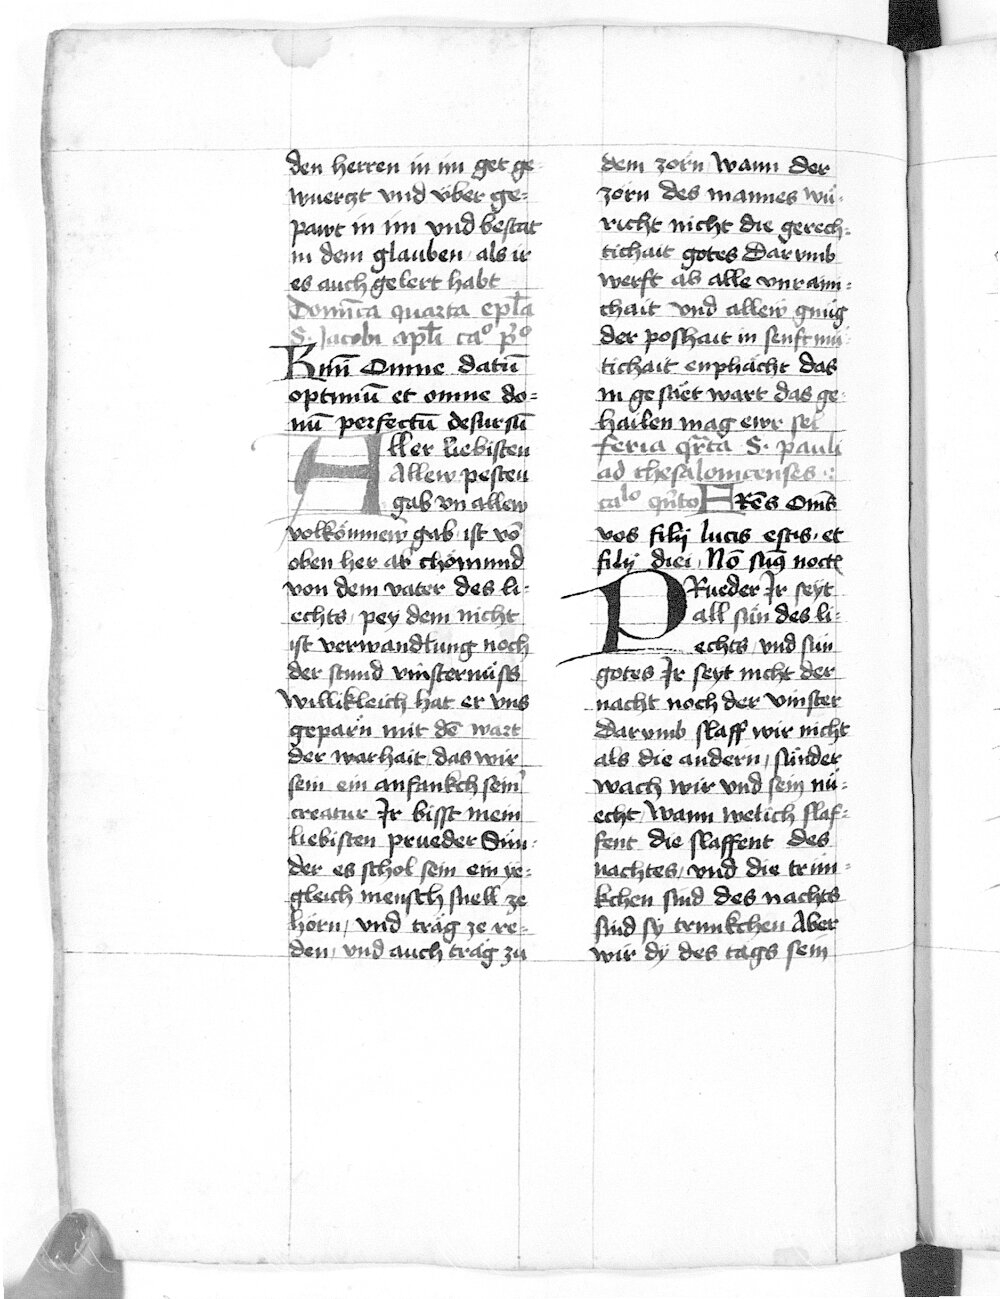 den herren in im get ge-
wuerczt vnd vber ge-
pawt in im vnd bestat
in dem glauben als ir
es auch gelert habt
Domi̅ca quarta epl̅a
S. Jacobi apl̅i caº p̅º
Kmi̅ Omne datu̅
optimu̅ et omne do-
nu̅ perfectu̅ desursu̅
Aller liebisten
Allew pesten
gab vn allew
volkömmew gab ist vo̅
oben her ab chömund
von dem vater des li-
echts pey dem nicht
ist verwandlung noch
der stund vinsternüss
willikleich hat er vns
geparn mit de̅ wart
der warhait das wir
sein ein anfankch sein
creatur Ir bisst mein
liebisten prueder Sün-
der es schol sein ein ye-
gleich mensch snell ze
hörn / vnd träg ze re-
den / vnd auch träg zu
dem zorn wann der
zorn des mannes wü-
richt nicht die gerech-
tichait gotes Dar vmb
werft ab alle vnrain-
chait vnd allew gnüg
der poshait in senftmü
tichait enphächt das
in gesäet wart das ge-
hailen mag ewr sel
feria qr̅ta S. pauli
ad thesalonicenses :
caˡº qn̅to FRe̅s Om̅s
vos filij lucis estis et
filij diei No̅ sum9 noct
PRueder Ir seyt
all sün des li-
echts vnd sun
gotes Ir seyt nicht der
nacht noch der vinster
Dar vmb slaff wir nicht
als die andern / sünder
wach wir vnd sein nü-
echt / Wann welich slaf-
fent die slaffent des
nachtes / vnd die trun-
kchen sind des nachts
sind sy trunkchen Aber
wir dy des tags sein